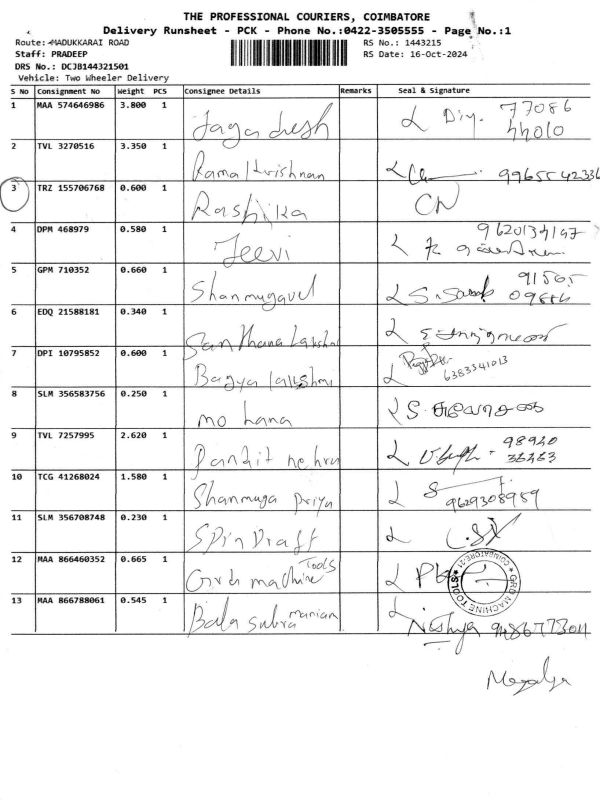 THE PROFESSIONAL COURIERS, COIMBATORE
Delivery Runsheet - PCK - Phone No.:0422-3505555 - Page No.:1
Route: MADUKKARAI ROAD RS No.: 1443215
Staff: PRADEEP RS Date: 16-Oct-2024
DRS No.: DCJB144321501
Vehicle: Two Wheeler Delivery
S No Consignment No Weight PCS Consignee Details Remarks Seal & Signature
1 MAA 574646986 3.800 1 Jagadhesh Diy. 77086
44010
2 TVL 3270516 3.350 1 Ramakrishnan 9965542336
3 TRZ 155706768 0.600 1 Rashika CN
4 DPM 468979 0.580 1 Jeevi
5 GPM 710352 0.660 1 Shanmugavel 91565
6 EDQ 21588181 0.340 1 Santhana Lakshmi
7 DPI 10795852 0.600 1 Bagya lakshmi 6383341013
8 SLM 356583756 0.250 1 mohana S. சுலோசனா
9 TVL 7257995 2.620 1 Pandit nehru 98940
36363
10 TCG 41268024 1.580 1 Shanmuga Priya 9629308959
11 SLM 356708748 0.230 1 Spin Draft
12 MAA 866460352 0.665 1 Grd machine Tools GRD MACHINE TOOLS COIMBATORE-21
13 MAA 866788061 0.545 1 Bala subramanian Nithya